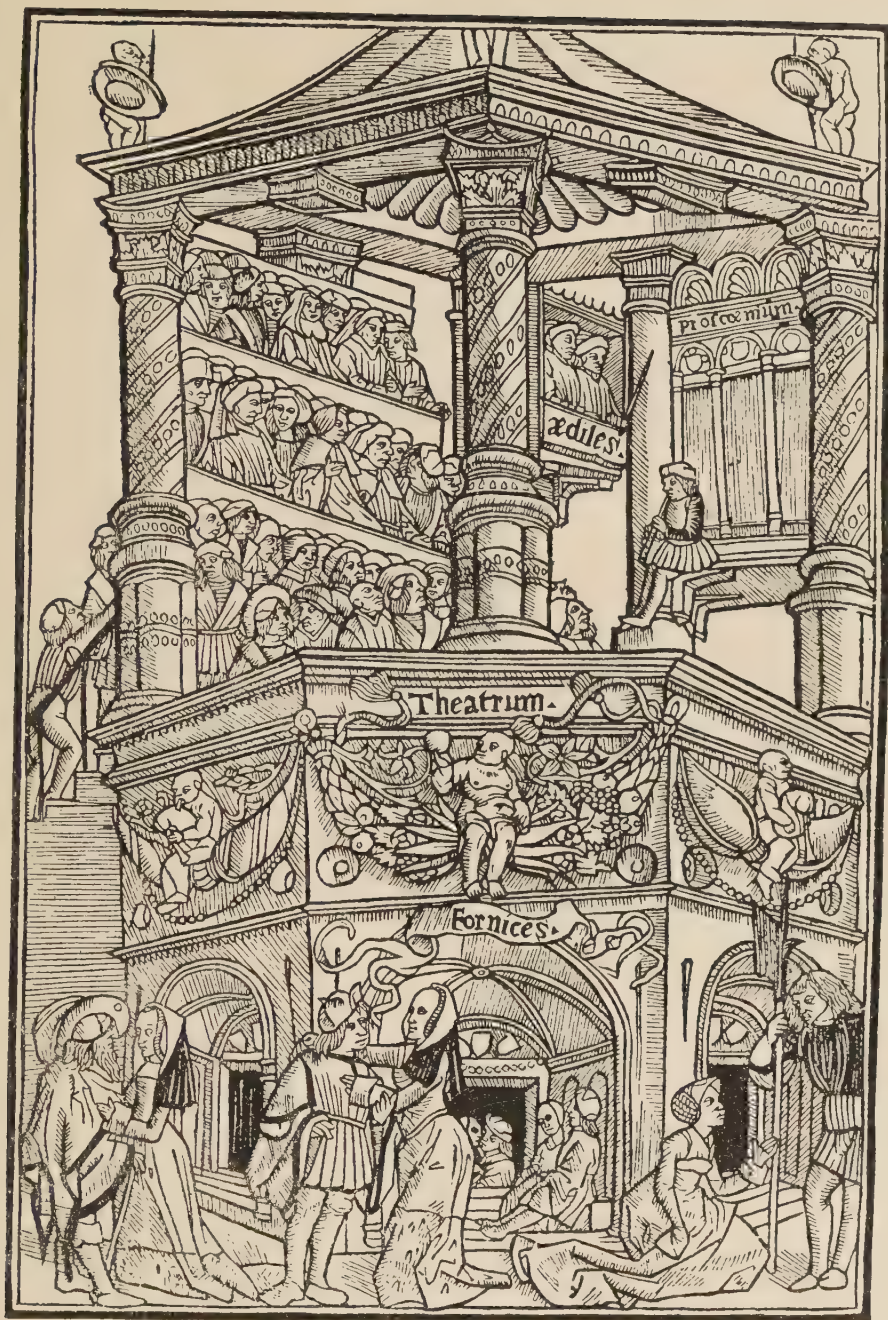 Proscœmium.
ædiles.
Theatrum.
Fornices.